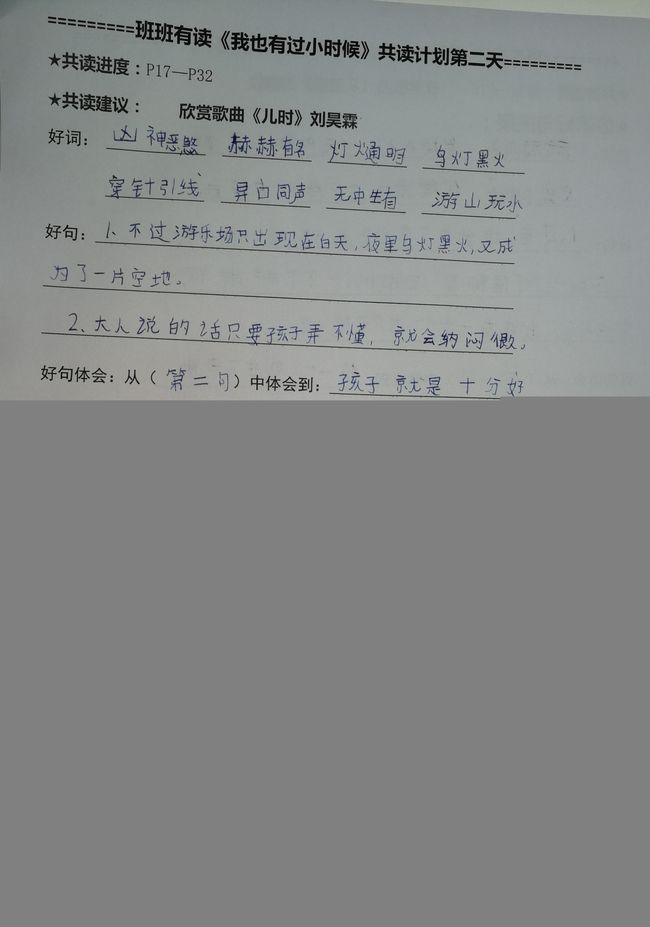 =========班班有读《我也有过小时候》共读计划第二天=========
★共读进度：P17—P32
★共读建议： 欣赏歌曲《儿时》刘昊霖
好词： 凶神恶煞 赫赫有名 灯火通明 乌灯黑火
穿针引线 异口同声 无中生有 游山玩水
好句：1、不过游乐场只出现在白天，夜里乌灯黑火，又成
为了一片空地。
2、大人说的话只要孩子弄不懂，就会纳闷很。
好句体会：从（第二句）中体会到：孩子就是十分好